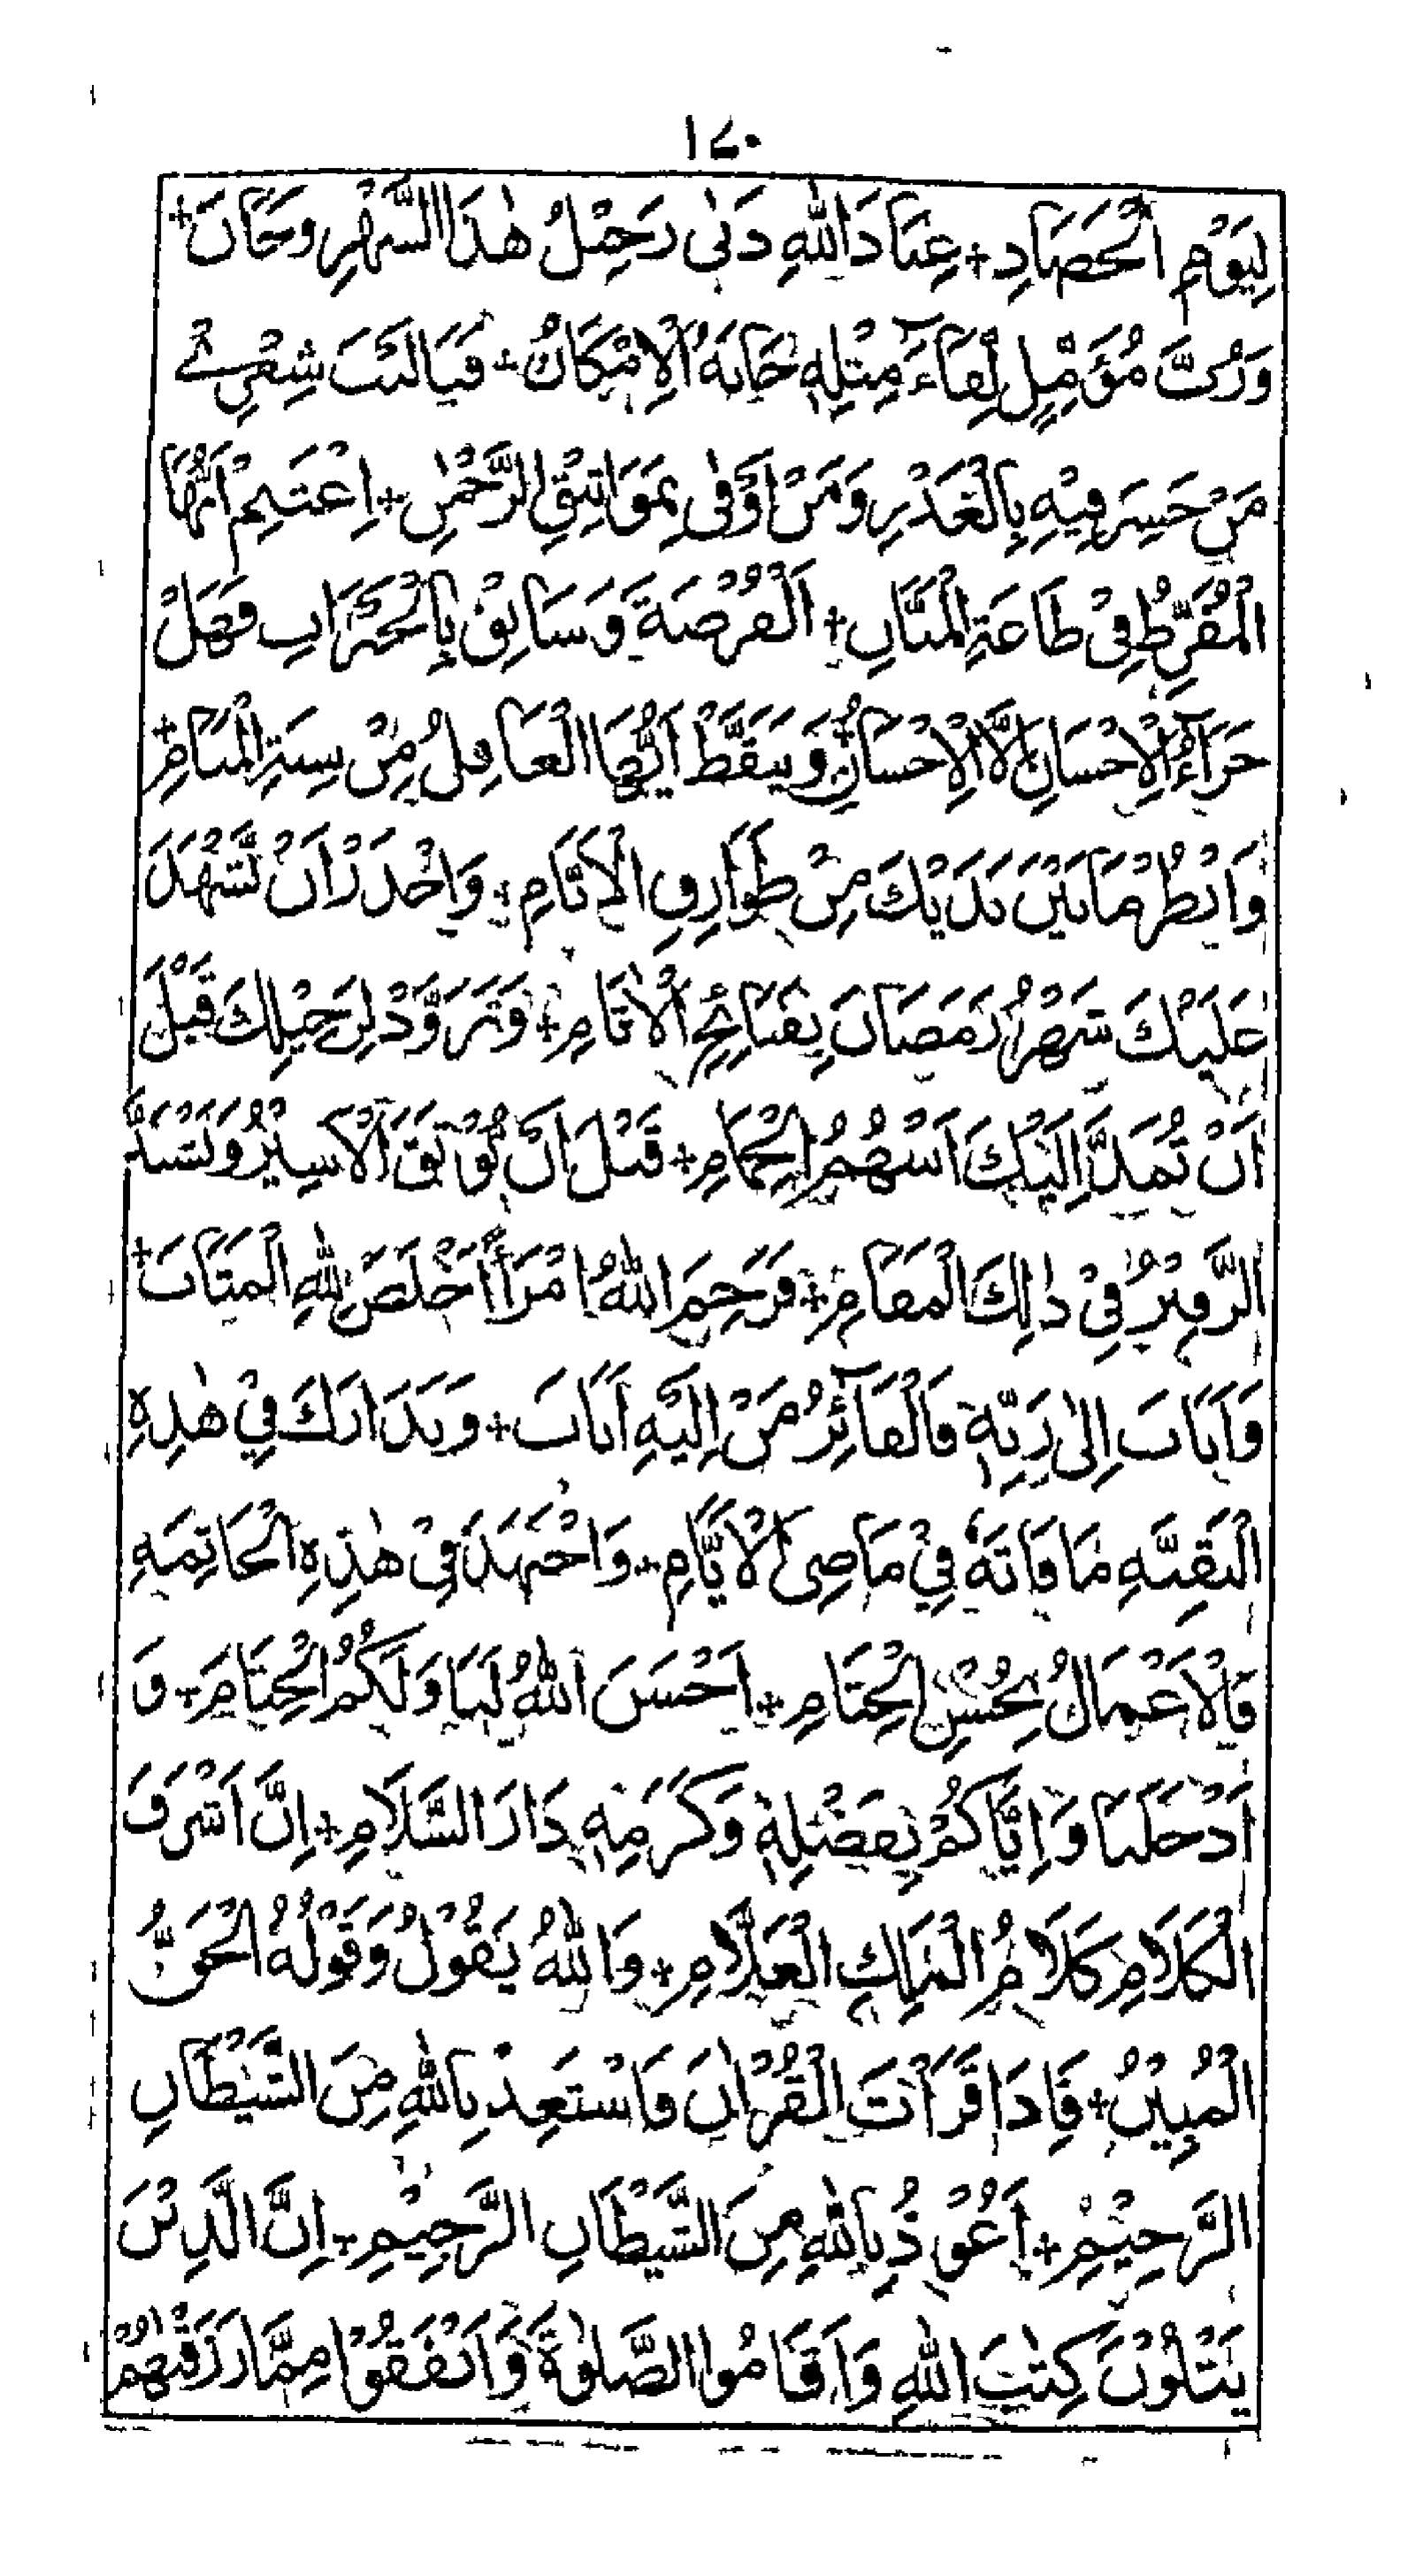 ١٤٠
لِيَوْمِ الْحَصَادِ + عِبَادَ اللهِ دَنٰى رَحِيْلُ هٰذَا الشَّهْرِ وَحَانَ +
وَرُبَّ مُؤَمِّلٍ لِقَآءَ مِثْلِهٖ خَانَهُ الْاِمْكَانُ + فَيَا لَيْتَ شِعْرِيْ
مَنْ خَسِرَ فِيْهِ بِالْغَدْرِ وَمَنْ اَوْفٰى بِمَوَاثِيْقِ الرَّحْمٰنِ + اِغْتَنِمْ اَيُّهَا
الْمُفَرِّطُ فِيْ طَاعَةِ الْمَنَّانِ + اَلْفُرْصَةَ وَسَابِقْ بِالْخَيْرَاتِ فَهَلْ
جَزَآءُ الْاِحْسَانِ اِلَّا الْاِحْسَانُ + وَتَيَقَّظْ اَيُّهَا الْغَافِلُ مِنْ سِنَةِ الْمَنَامِ +
وَانْظُرْ مَا بَيْنَ يَدَيْكَ مِنْ طَوَارِقِ الْاَيَّامِ + وَاحْذَرْ اَنْ تَشْهَدَ
عَلَيْكَ شَهْرُ رَمَضَانَ بِقَبَائِحِ الْاٰثَامِ + وَتَزَوَّدْ لِرَحِيْلِكَ قَبْلَ
اَنْ تُمَدَّ اِلَيْكَ اَسْهُمُ الْحِمَامِ + قَبْلَ اَنْ يُوْثَقَ الْاَسِيْرُ وَيَشْتَدَّ
الزَّفِيْرُ فِيْ ذٰلِكَ الْمَقَامِ + فَرَحِمَ اللهُ امْرَأً اَخْلَصَ لِلهِ الْمَتَابَ +
وَاَنَابَ اِلٰى رَبِّهٖ فَالْفَآئِزُ مَنْ اِلَيْهِ اَنَابَ + وَتَدَارَكَ فِيْ هٰذِهِ
الْبَقِيَّةِ مَا فَاتَهٗ فِيْ مَاضِى الْاَيَّامِ + وَاجْتَهَدَ فِيْ هٰذِهِ الْخَاتِمَةِ
فَالْاَعْمَالُ بِحُسْنِ الْخِتَامِ + اَحْسَنَ اللهُ لَنَا وَلَكُمُ الْخِتَامَ + وَ
اَدْخَلَنَا وَاِيَّاكُمْ بِفَضْلِهٖ وَكَرَمِهٖ دَارَ السَّلَامِ + اِنَّ اَشْرَفَ
الْكَلَامِ كَلَامُ الْمَلِكِ الْعَلَّامِ + وَاللهُ يَقُوْلُ وَقَوْلُهُ الْحَقُّ
الْمُبِيْنُ + فَاِذَا قَرَأْتَ الْقُرْاٰنَ فَاسْتَعِذْ بِاللهِ مِنَ الشَّيْطَانِ
الرَّجِيْمِ + اَعُوْذُ بِاللهِ مِنَ الشَّيْطَانِ الرَّجِيْمِ + اِنَّ الَّذِيْنَ
يَتْلُوْنَ كِتٰبَ اللهِ وَاَقَامُوا الصَّلٰوةَ وَاَنْفَقُوْا مِمَّا رَزَقْنٰهُمْ